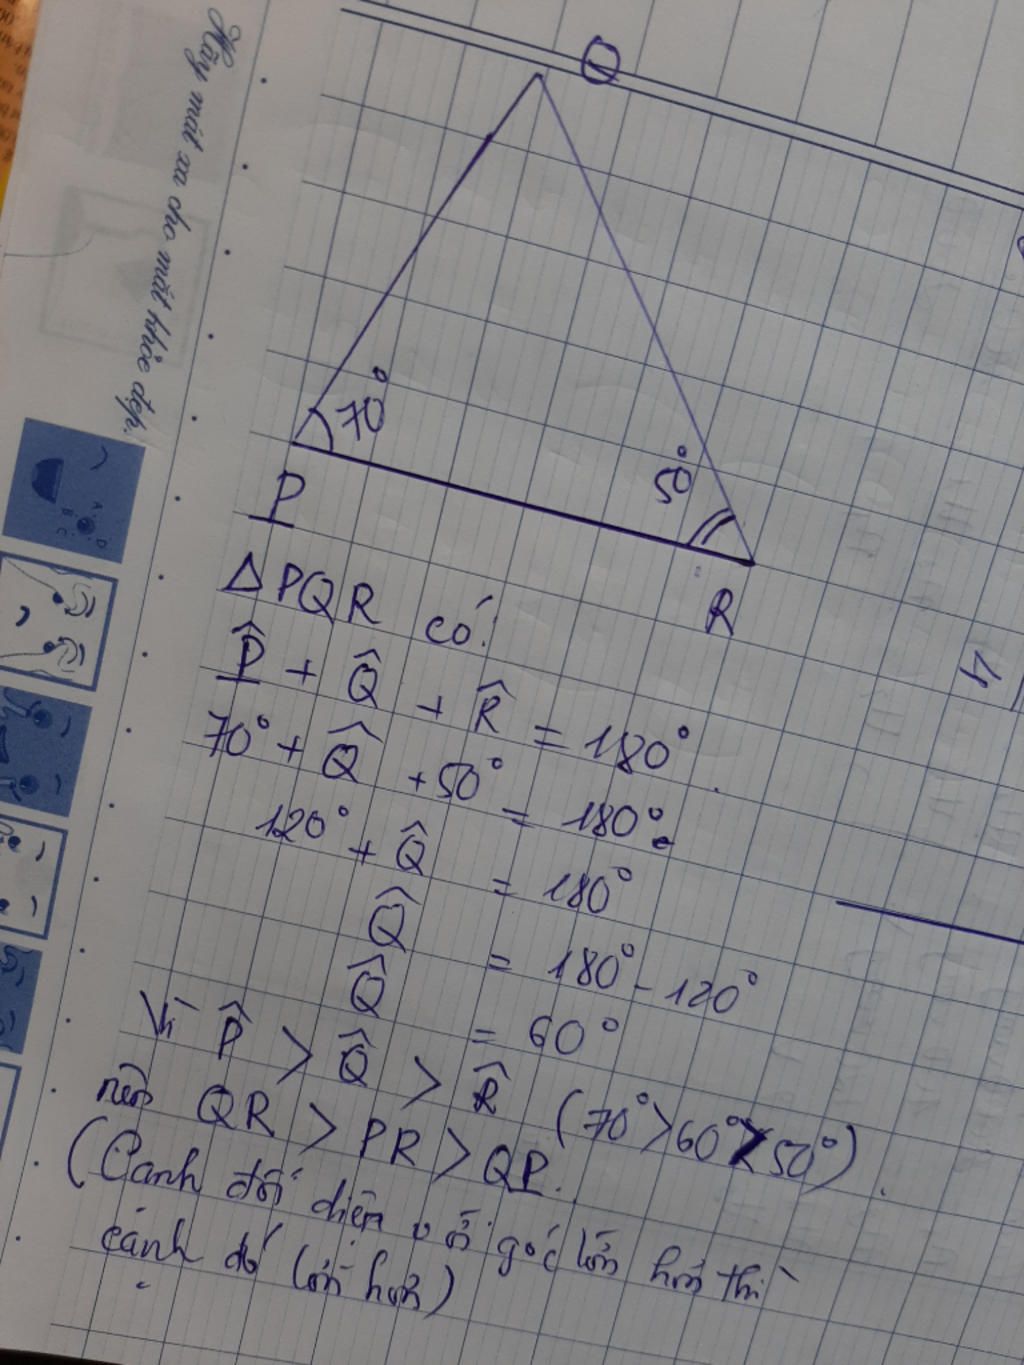 Hãy mát xa cho mắt khỏe đẹp.
Q
70°
50°
P
R
Δ PQR có:
P̂ + Q̂ + R̂ = 180°
70° + Q̂ + 50° = 180°
120° + Q̂ = 180°
Q̂ = 180° - 120°
Q̂ = 60°
Vì P̂ > Q̂ > R̂ (70° > 60° > 50°)
nên QR > PR > QP.
(Cạnh đối diện với góc lớn hơn thì
cạnh đó lớn hơn)